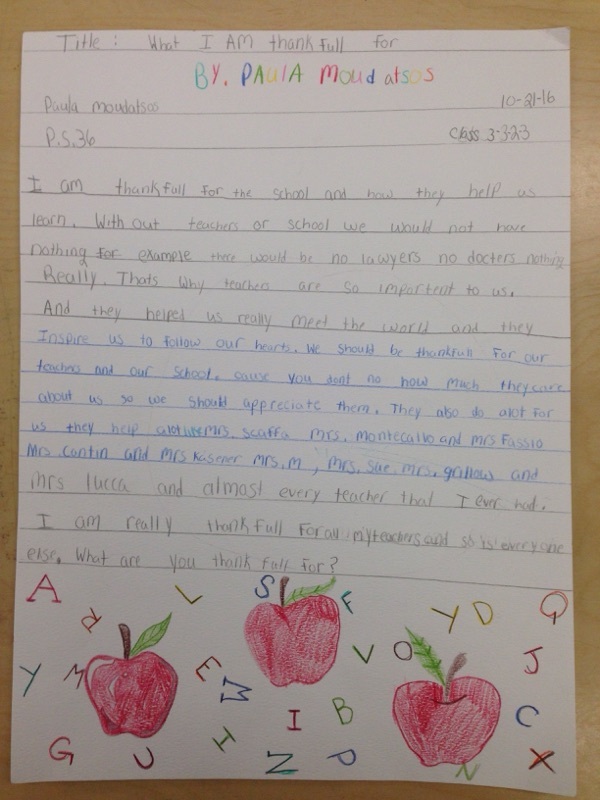 Title: What I AM thankfull for
BY. PAULA Moudatsos
Paula moudatsos 10-21-16
P.S.36 Class 3-323
I am thankfull for the school and how they help us
learn. With out teachers or school we would not have
nothing for example there would be no lawyers no docters nothing
Really. Thats why teachers are so importent to us.
And they helped us really meet the world and they
Inspire us to follow our hearts. We should be thankfull for our
teaches and our school. cause you dont no how much they care
about us so we should appreciate them. They also do alot for
us they help alot like mrs. scaffa mrs. montecalvo and mrs Fassio
Mrs. Contin and mrs Kasener mrs. m, mrs. sue, mrs. grillows and
mrs lucca and almost every teacher that I ever had.
I am really thankfull for all my teachers and so is everyone
else. What are you thankfull for?
A L S F Y D Q
R V O J
Y M E M B C
G U H I N P N X